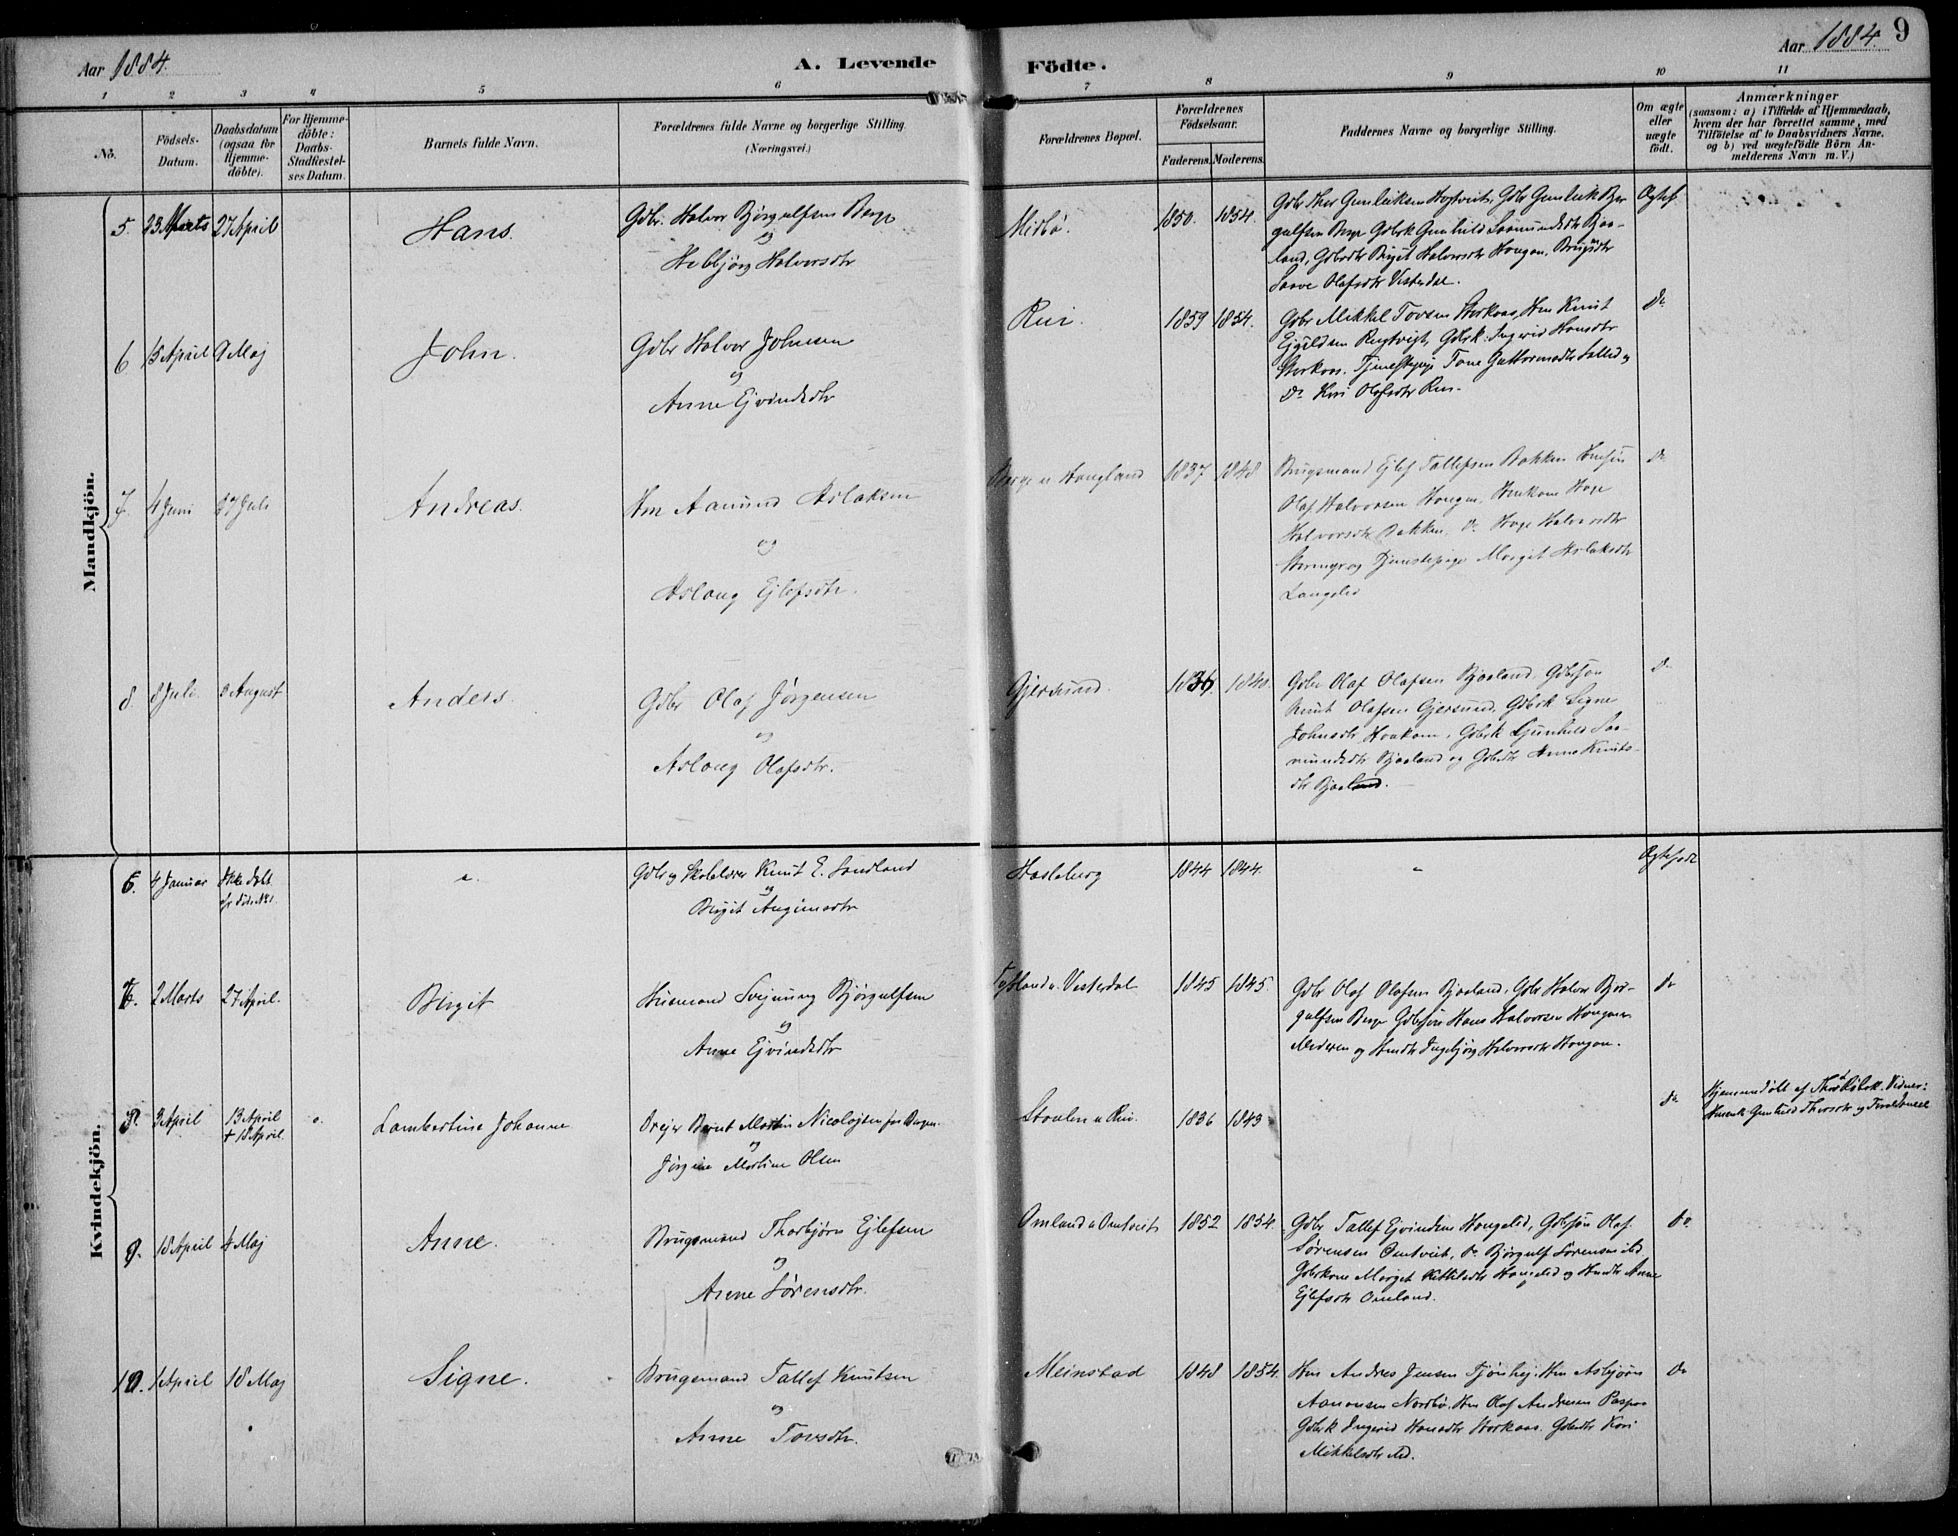 Aar 1884.
A. Levende Födte.
Aar 1884. 9
1 2 3 4 5 6 7 8 9 10 11
No.
Födsels-Datum.
Daabsdatum (ogsaa for Hjemme-döbte).
For Hjemme-döbte: Daabs-Stadfæstel-ses Datum.
Barnets fulde Navn.
Forældrenes fulde Navne og borgerlige Stilling.
(Næringsvei.)
Forældrenes Bopæl.
Forældrenes Födselsaar.
Faderens. Moderens.
Faddernes Navne og borgerlige Stilling.
Om ægte eller uægte födt.
Anmærkninger
(saasom: a) i Tilfælde af Hjemmedaab,
hvem der har forrettet samme, med
Tilföielse af to Daabsvidners Navne,
og b) ved uægtefödte Börn An-
melderens Navn m. V.)
Mandkjön.
5. 23 Marts 27 April Hans. Gdbr. Halvor Bjørgulfsen Berge
og
Hæbbjørg Halvorsdtr
Midbø. 1850. 1854.
Gunleiksen Gdbr Gunleik Bjør-
gulfsen Berge Gdbrk Gunhild Saamundsdtr Bjaa-
land, Gdbrdtr Birgit Halvorsdtr Haugen,
Saave Olafsdtr Vesterdal.
Ægtef.
6 13 April 9 Maj John. Gdbr Halvor Johnsen
og
Anne Ejvindsdtr
Rui. 1859 1854.
Gdbr Mikkel Tovsen Storkaas, Hm Knut
Ejvildsen Gdbrk. Ingerid Hansdtr
Storkaas. Tjenestepige Tone Guttormsdtr
Do Kari Olafsdtr Rui.
Do
7. 4 Juni 27 Juli Andreas. Hm Aamund Aslaksen
og
Aslaug Ejlefsdtr.
Berge u Haugland 1837 1848
Brugsmand Ejlef Tallefsen Bakken
Olaf Halvorsen Haugen, Huskone Hæge
Halvorsdtr Bakken, Do Hæge Halvorsdtr
og Tjenestepige Margit Aslaksdtr
Langelid
Do
8 8 Juli 3 August Anders. Gdbr Olaf Jørgensen
og
Aslaug Olafsdtr.
Gjersund. 1836 1840.
Gdbr Olaf Olafsen Bjaaland, Gdbrsøn
Knut Olafsen Gjersund, Gdbrk Signe
Johnsdtr Haukom, Gdbrk Gunhild Saa-
mundsdtr Bjaaland og Gdbrdtr Anne Knuts-
dtr Bjaaland.
Do
Kvindekjön.
6. 4 Januar Ikke døbt Gdbr og Skolelærer Knut E. Sundland
og
Birgit Augunsdtr
Hasleberg 1844 1844.
Ægtefødt
7. 2 Marts 27 April. Birgit Husmand Svejnung Bjørgulfsen
og
Anne Ejvindsdtr
u. Vesterdal 1845 1845.
Gdbr Olaf Olafsen Bjaaland, Gdbr Halvor Bjør-
gulfsen Berge Gdbrsøn Hans Halvorsen Haugen
Moderen og Ingebjørg Halvorsdtr Haugen.
do
8. 3 April 13 April
+ 18 April.
Lambertine Johanne Drejer Bernt Martin Nicolajsen fra Bergen.
og
Jørgine Martine Olsen
Staalen u Rui. 1836 1843
do
Hjemmedøbt af
Gunhild Thorsdtr og
9. 18 April 4 Maj Anne. Brugsmand Thorbjørn Ejlefsen
og
Anne Sørensdtr.
Omland u Omtveit 1852 1854.
Gdbr Tallef Ejvindsen Haugelid, Gdbrsøn Olaf
Sørensen Omtveit, Do Bjørgulf Sørensen ibd.
Gdbrkone Margit Kittilsdtr Haugelid og Anne
Ejlefsdtr Omland.
do
10. 1 April 18 Maj Signe. Brugsmand Tallef Knutsen
og
Anne Tovsdtr.
Meinstad 1848 1854.
Hm Andres Jensen Hm Asbjørn
Aanonsen Nordbø. Hm Olaf Andresen
Gdbrk Ingerid Hansdtr Storkaas. Gdbrdtr Kari
Mikkelsdtr ibd.
do